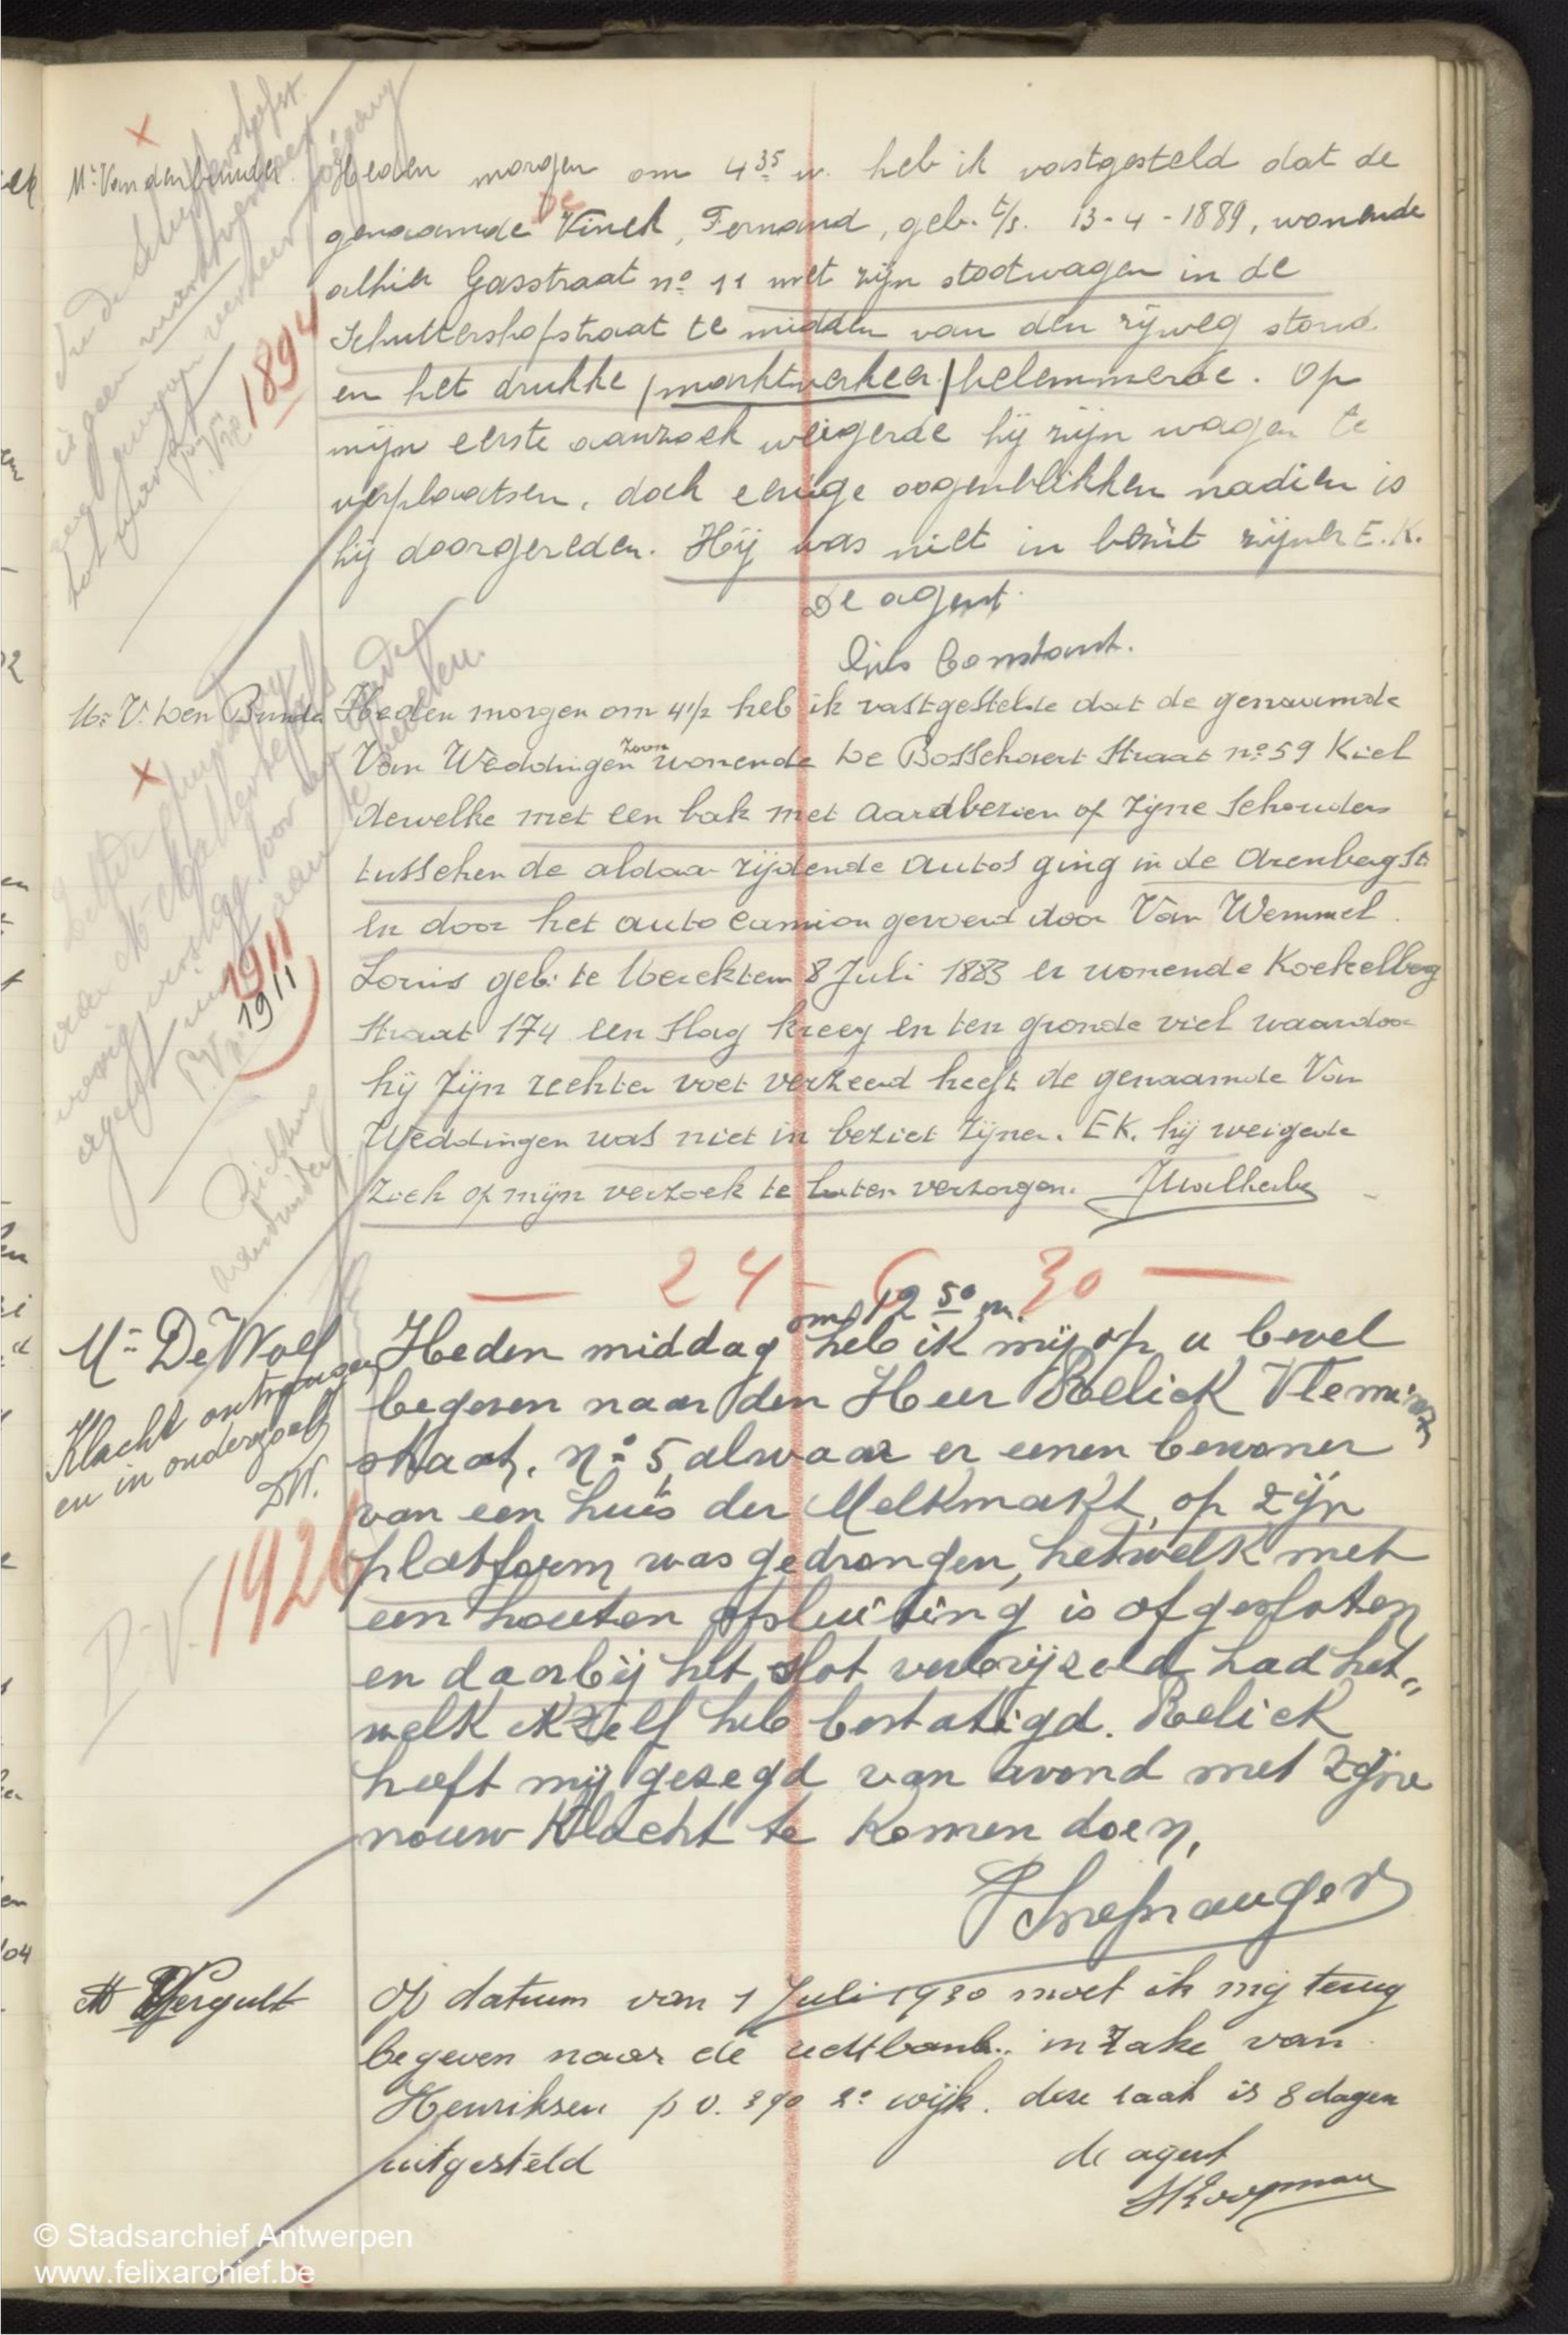 Mr Van den Bunder
Heden morgen om 4 35 u. heb ik vastgesteld dat de
genaamde De Vinck, Fernand, geb. t/s. 13-4-1889, wonende
alhier Gasstraat no 11 met zijn stootwagen in de
Schuttershofstraat te midden van den rijweg stond
en het drukke (marktverkeer) belemmerde. Op
mijn eerste aanzoek weigerde hij zijn wagen te
verplaatsen, doch eenige oogenblikken nadien is
hij doorgereden. Hij was niet in bezit zijner E.K.
De agent
Constant.
In de Schuttershofstr.
is geen marktverkeer
P.V. no 1894
Mr V. Den Bunder
Heden morgen om 4 1/2 heb ik vastgestelde dat de genaamde
Van Weddingen zoon wonende De Bosschaert Straat no 59 Kiel
dewelke met een bak met aardbezien op zijne Schouders
tusschen de aldaar rijdende autos ging in de Arenberg St.
en door het auto camion gevoerd door Van Wemmel.
Louis geb. te 8 Juli 1883 en wonende Koekelberg
Straat 174 een slag kreeg en ten gronde viel waardoor
hij zijn rechter voet verzeerd heeft de genaamde Van
Weddingen was niet in beziet zijner. EK. hij weigerde
zich op mijn verzoek te laten verzorgen. JMalherbe
P.V. 1911
1911
— 24-6-30 —
Mr De Wolf
Klacht ontvangen
en in onderzoek
DW.
P.V. 1926
Heden middag om 12 50 u. heb ik mij op u bevel
begeven naar den Heer Roelick Vleminx
straat, no 5, alwaar er eenen bewoner
van een huis der Melkmarkt, op zijn
platform was gedrongen, hetwelk met
een houten afsluiting is afgesloten
en daarbij het slot verbrijzeld had het„
welk ikzelf heb bestatigd. Roelick
heeft mij gezegd van avond met zijne
vrouw klacht te komen doen,
Mr Vergult
Op datum van 1 Juli 1930 moet ik mij terug
begeven naar de rechtbank. in zake van
Henriksen p v. 390 2e wijk. deze zaak is 8 dagen
uitgesteld
de agent
Koopman
© Stadsarchief Antwerpen
www.felixarchief.be